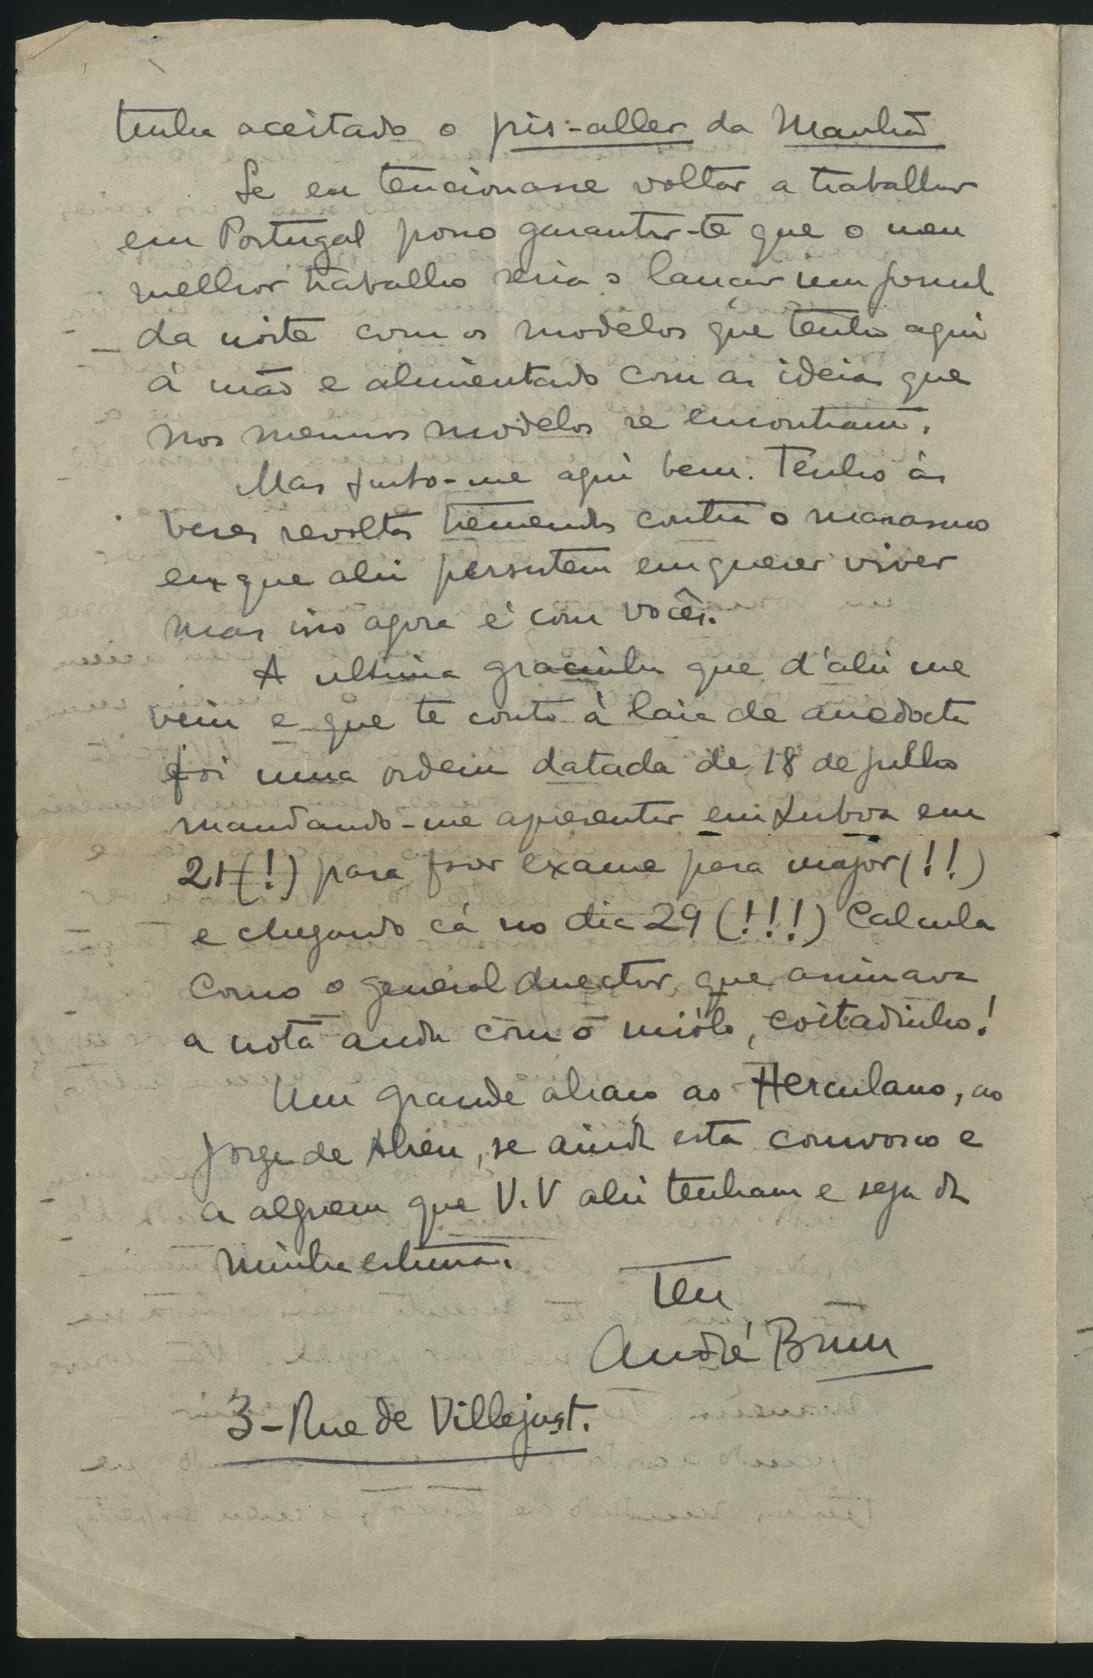 tenha aceitado o pis-aller da Manhã
Se eu tencionasse voltar a trabalhar
em Portugal posso garantir-te que o meu
melhor trabalho seria o lançar um jornal
da noite com os modelos que tenho aqui
á mão e alimentado com as ideias que
nos mesmos modelos se encontram.
Mas sinto-me aqui bem. Tenho ás
vezes revoltas tremendas contra o marasmo
em que ahi persistem em querer viver
mas isso agora é com vocês.
A ultima gracinha que d'ahi me
veiu e que te conto á laia de anedocta
foi uma ordem datada de 18 de julho
mandando-me apresentar em Lisboa em
21 (!) para fazer exame para major (!!)
e chegando cá no dia 29 (!!!) Calcula
como o general director, que assinava
a nota anda com o miólo, coitadinho!
Um grande abraço ao Herculano, ao
Jorge de Abreu, se ainda está comvosco e
a alguem que V.V ahi tenham e seja da
minha estima.
Teu
André Brun
3-Rue de Villejust.